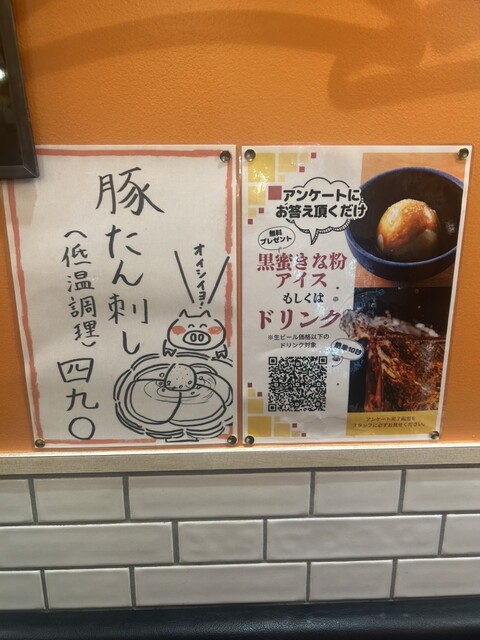 豚たん刺し
(低温調理)
四九〇
オイシイヨ!
アンケートに
お答え頂くだけ
無料
プレゼント
黒蜜きな粉
アイス
もしくは
ドリンク
※生ビール価格以下の
ドリンク対象
簡単10秒
アンケート完了画面を
スタッフに必ずお見せください。